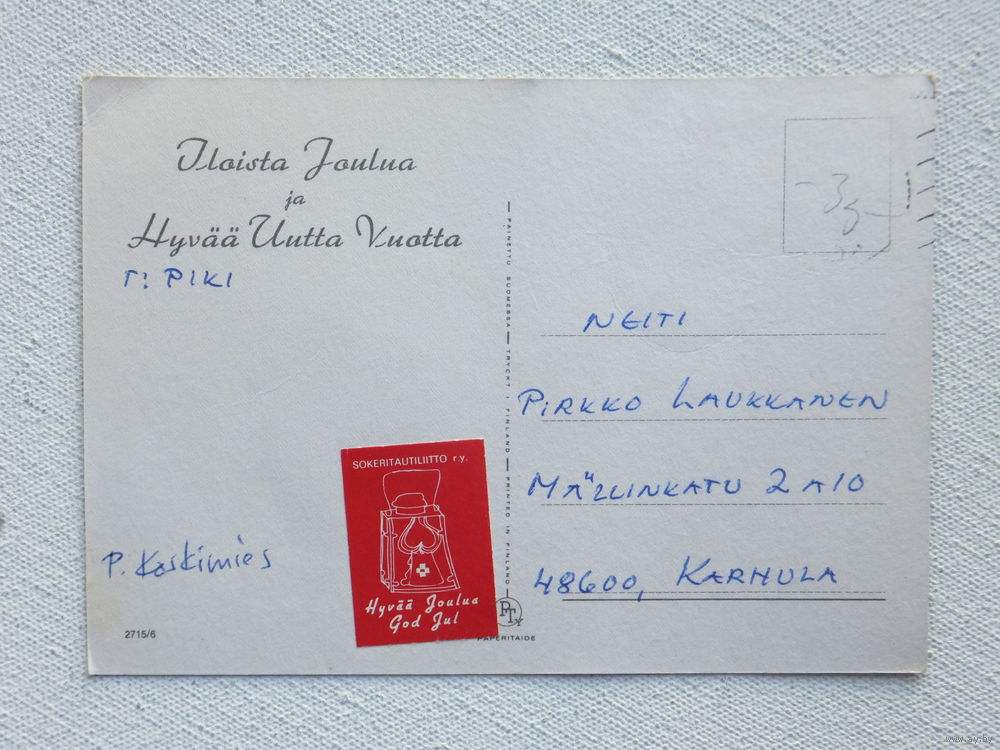 Iloista Joulua
ja
Hyvää Uutta Vuotta
T: PIKI
P. Koskimies
2715/6
SOKERITAUTILIITTO r.y.
Hyvää Joulua
God Jul
PAINETTU SUOMESSA — TRYCKT I FINLAND — PRINTED IN FINLAND
PTy
PAPERITAIDE
-35-
NEITI
PIRKKO LAUKKANEN
MÄLLINKATU 2 A 10
48600, KARHULA
www.ay.by